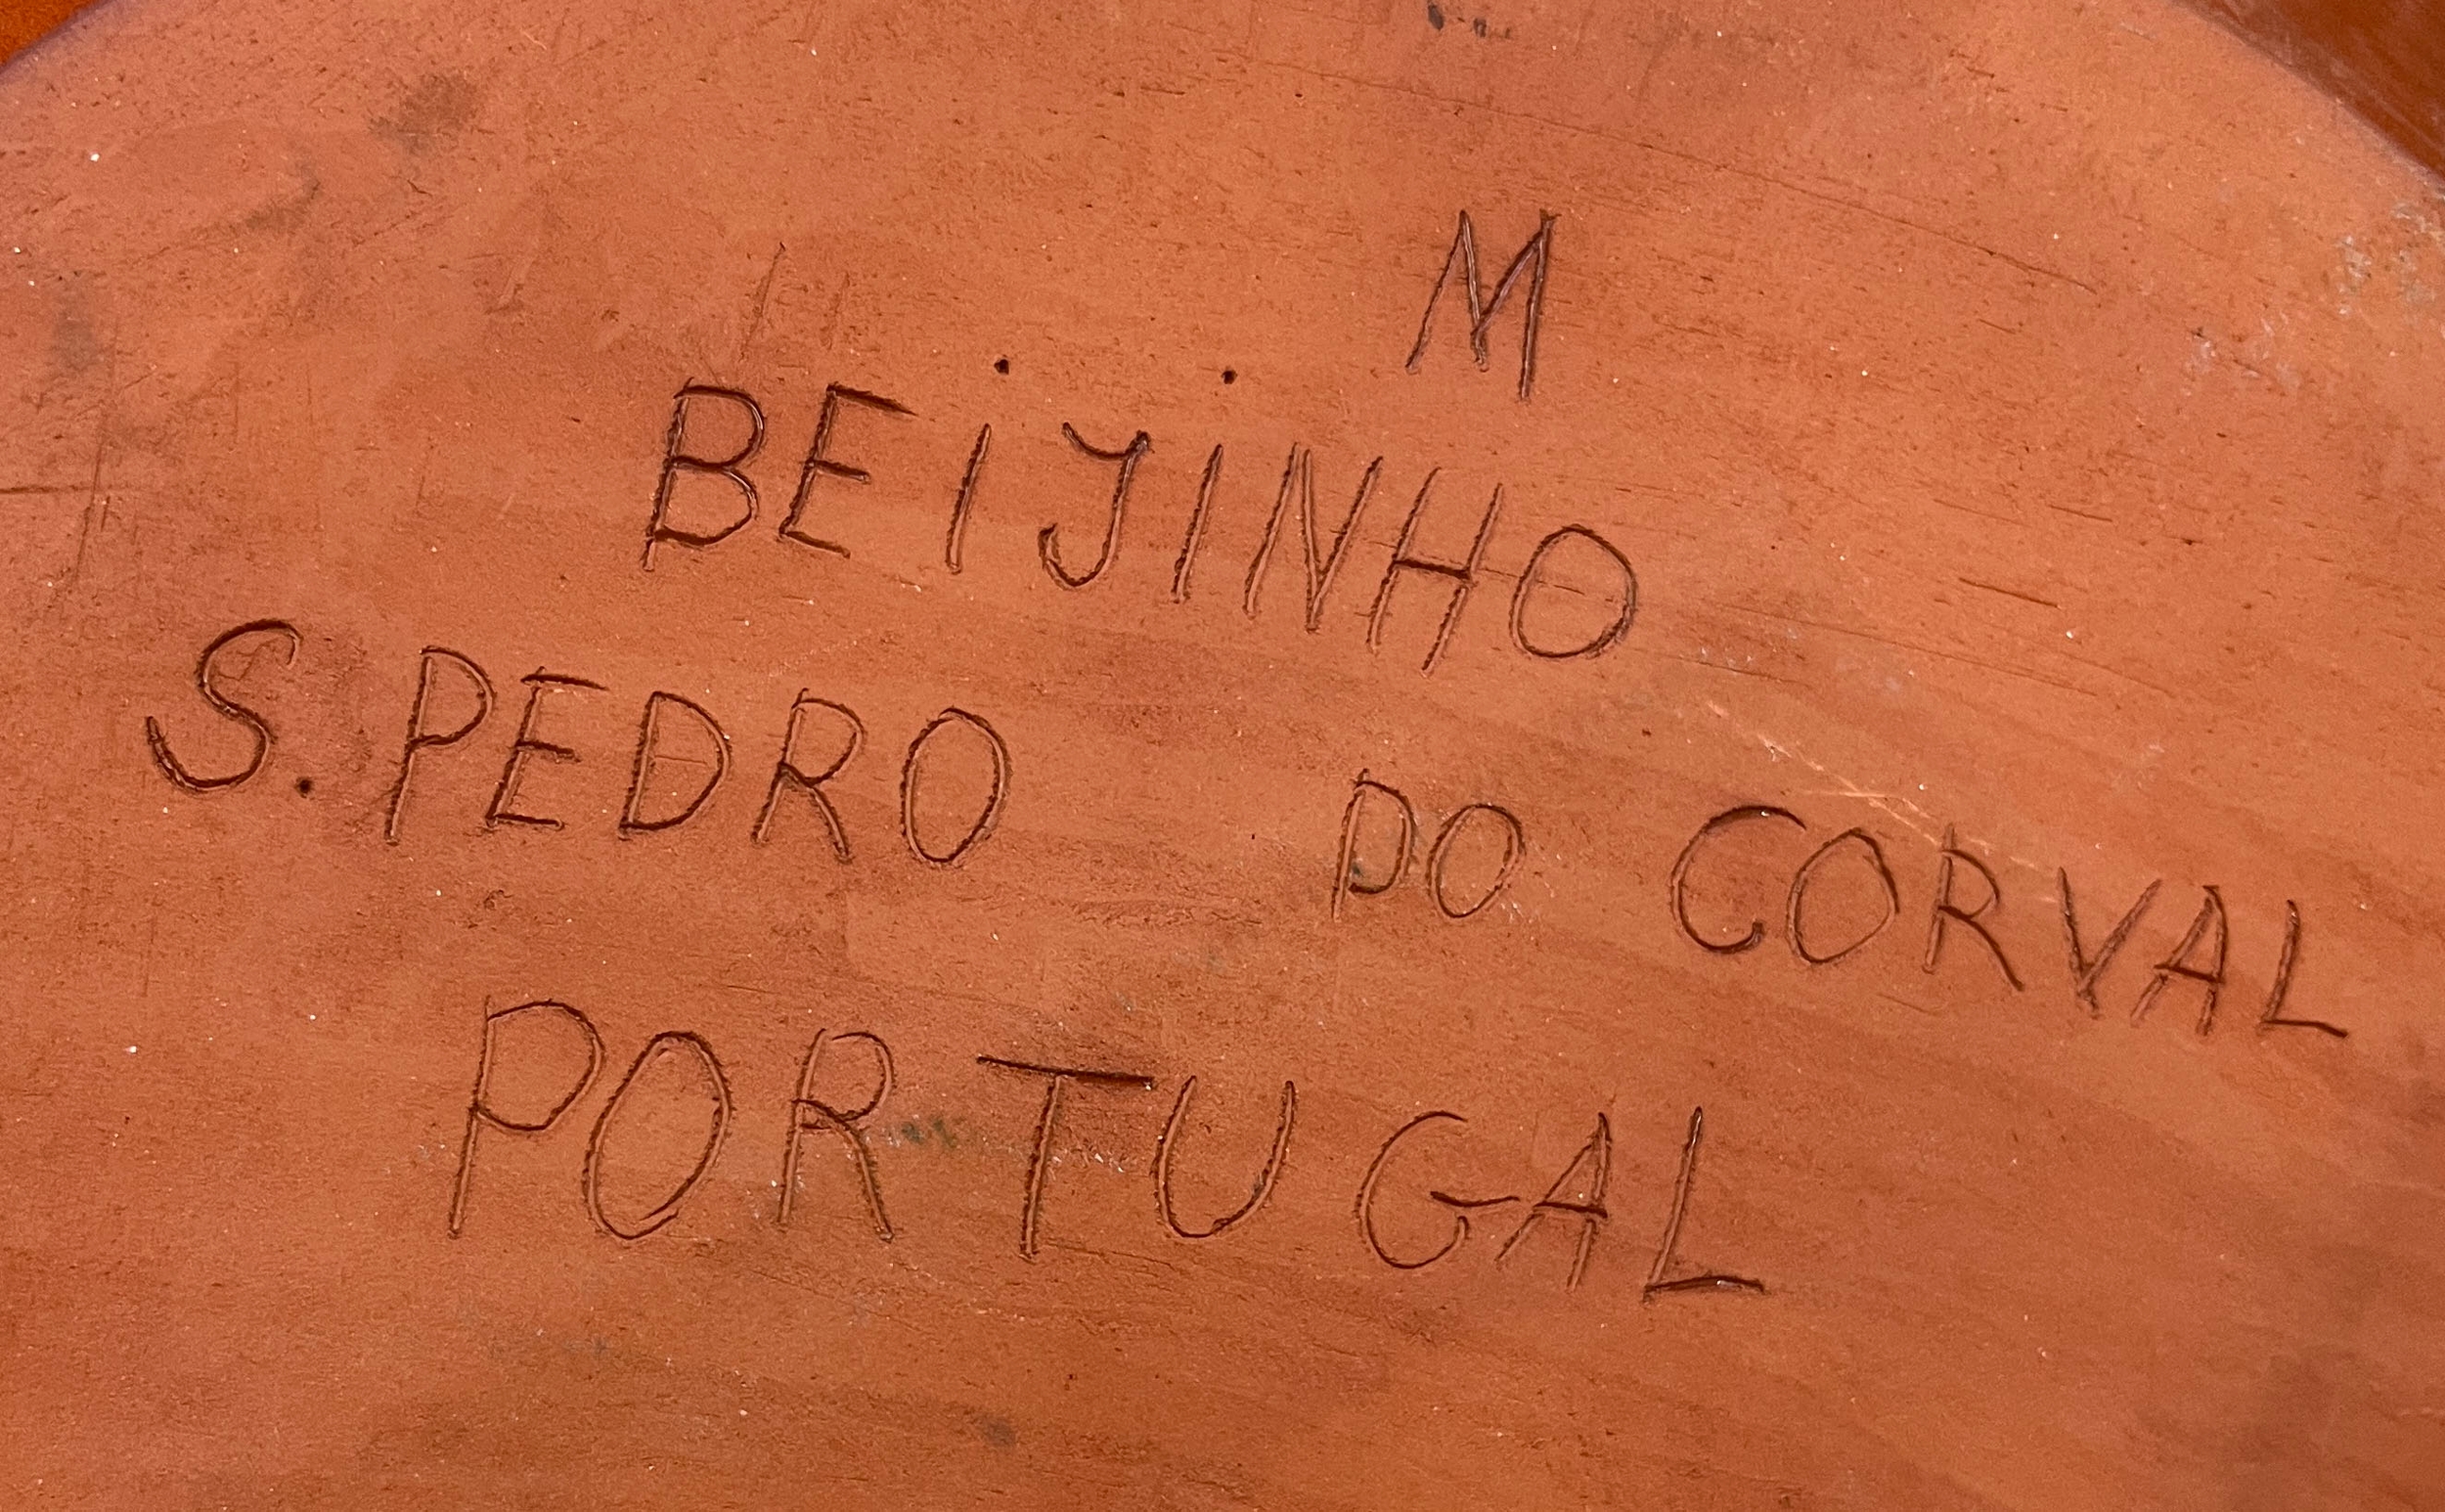 M
BEiJINHO
S. PEDRO DO CORVAL
PORTUGAL